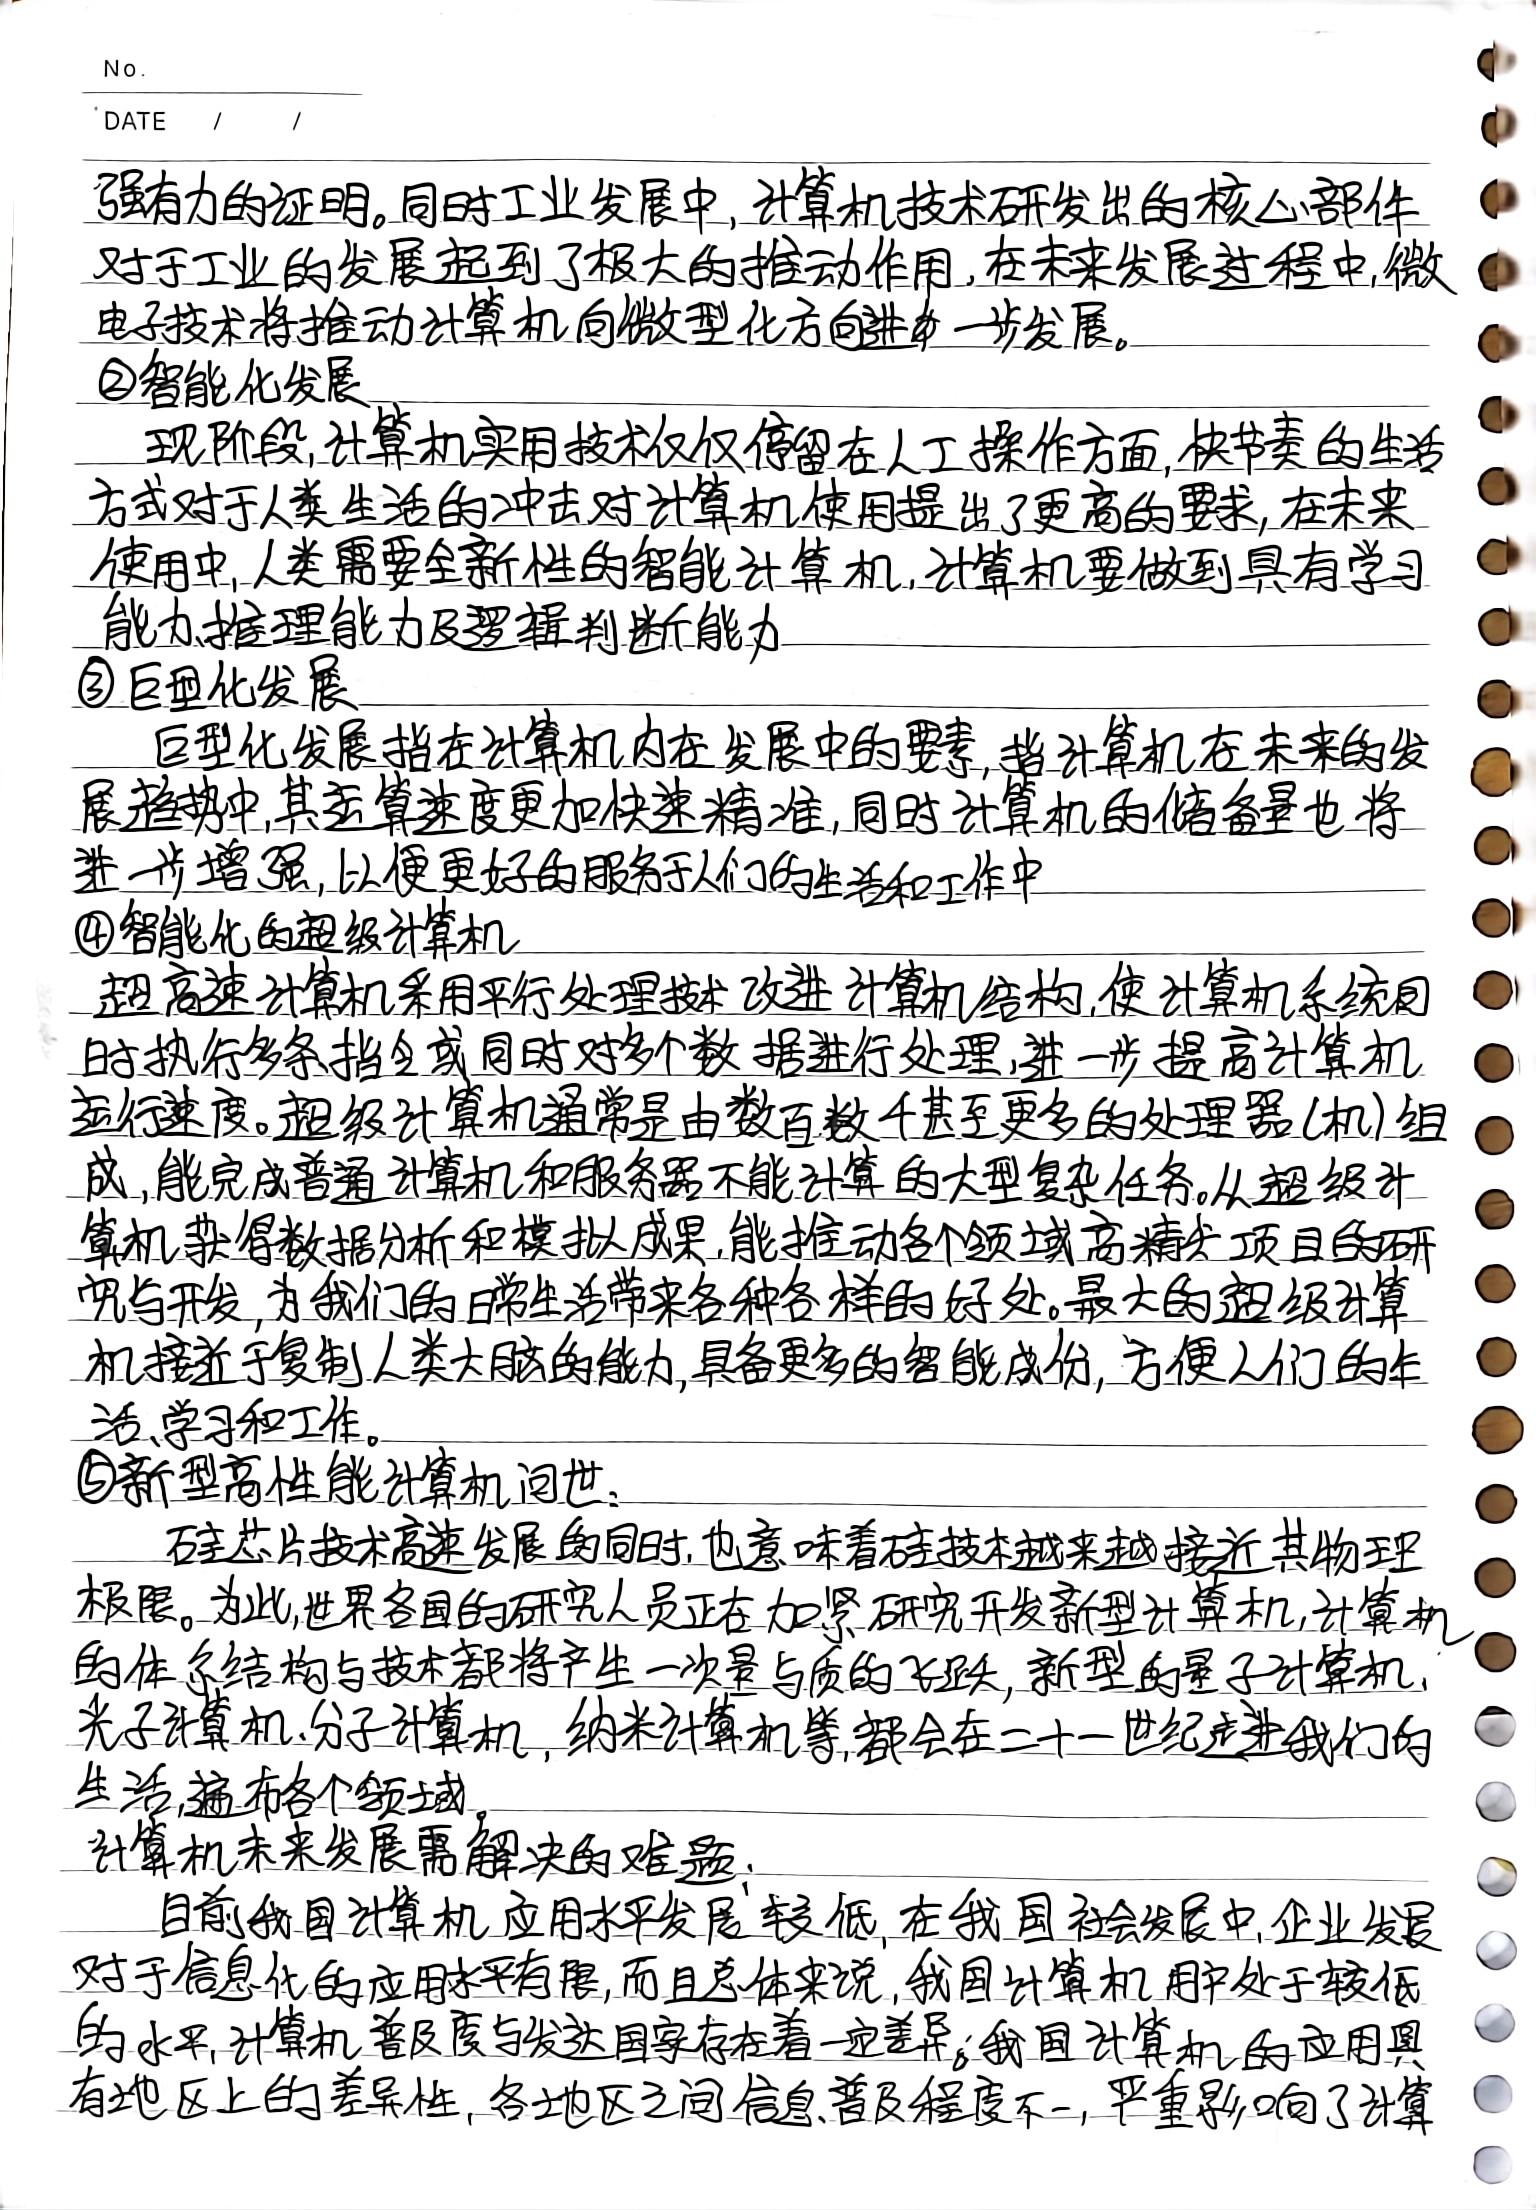 No.
DATE / /
强有力的证明。同时工业发展中,计算机技术研发出的核心部件
对于工业的发展起到了极大的推动作用,在未来发展过程中,微
电子技术将推动计算机向微型化方向进一步发展。
②智能化发展
现阶段,计算机实用技术仅仅停留在人工操作方面,快节奏的生活
方式对于人类生活的冲击对计算机使用提出了更高的要求,在未来
使用中,人类需要全新性的智能计算机,计算机要做到具有学习
能力、推理能力及逻辑判断能力
③巨型化发展
巨型化发展指在计算机内在发展中的要素,指计算机在未来的发
展趋势中,其运算速度更加快速精准,同时计算机的储备量也将
进一步增强,以便更好的服务于人们的生活和工作中
④智能化的超级计算机
超高速计算机采用平行处理技术改进计算机结构,使计算机系统同
时执行多条指令或同时对多个数据进行处理,进一步提高计算机
运行速度。超级计算机通常是由数百数千甚至更多的处理器(机)组
成,能完成普通计算机和服务器不能计算的大型复杂任务。从超级计
算机获得数据分析和模拟成果,能推动各个领域高精尖项目的研
究与开发,为我们的日常生活带来各种各样的好处。最大的超级计算
机接近于复制人类大脑的能力,具备更多的智能成份,方便人们的生
活、学习和工作。
⑤新型高性能计算机问世:
硅芯片技术高速发展的同时,也意味着硅技术越来越接近其物理
极限。为此,世界各国的研究人员正在加紧研究开发新型计算机,计算机
的体系结构与技术都将产生一次量与质的飞跃,新型的量子计算机、
光子计算机、分子计算机,纳米计算机等,都会在二十一世纪走进我们的
生活,遍布各个领域。
计算机未来发展需解决的难题:
目前我国计算机应用水平发展较低,在我国社会发展中,企业发展
对于信息化的应用水平有限,而且总体来说,我国计算机用户处于较低
的水平,计算机普及度与发达国家存在着一定差异;我国计算机的应用具
有地区上的差异性,各地区之间信息普及程度不一,严重影响了计算